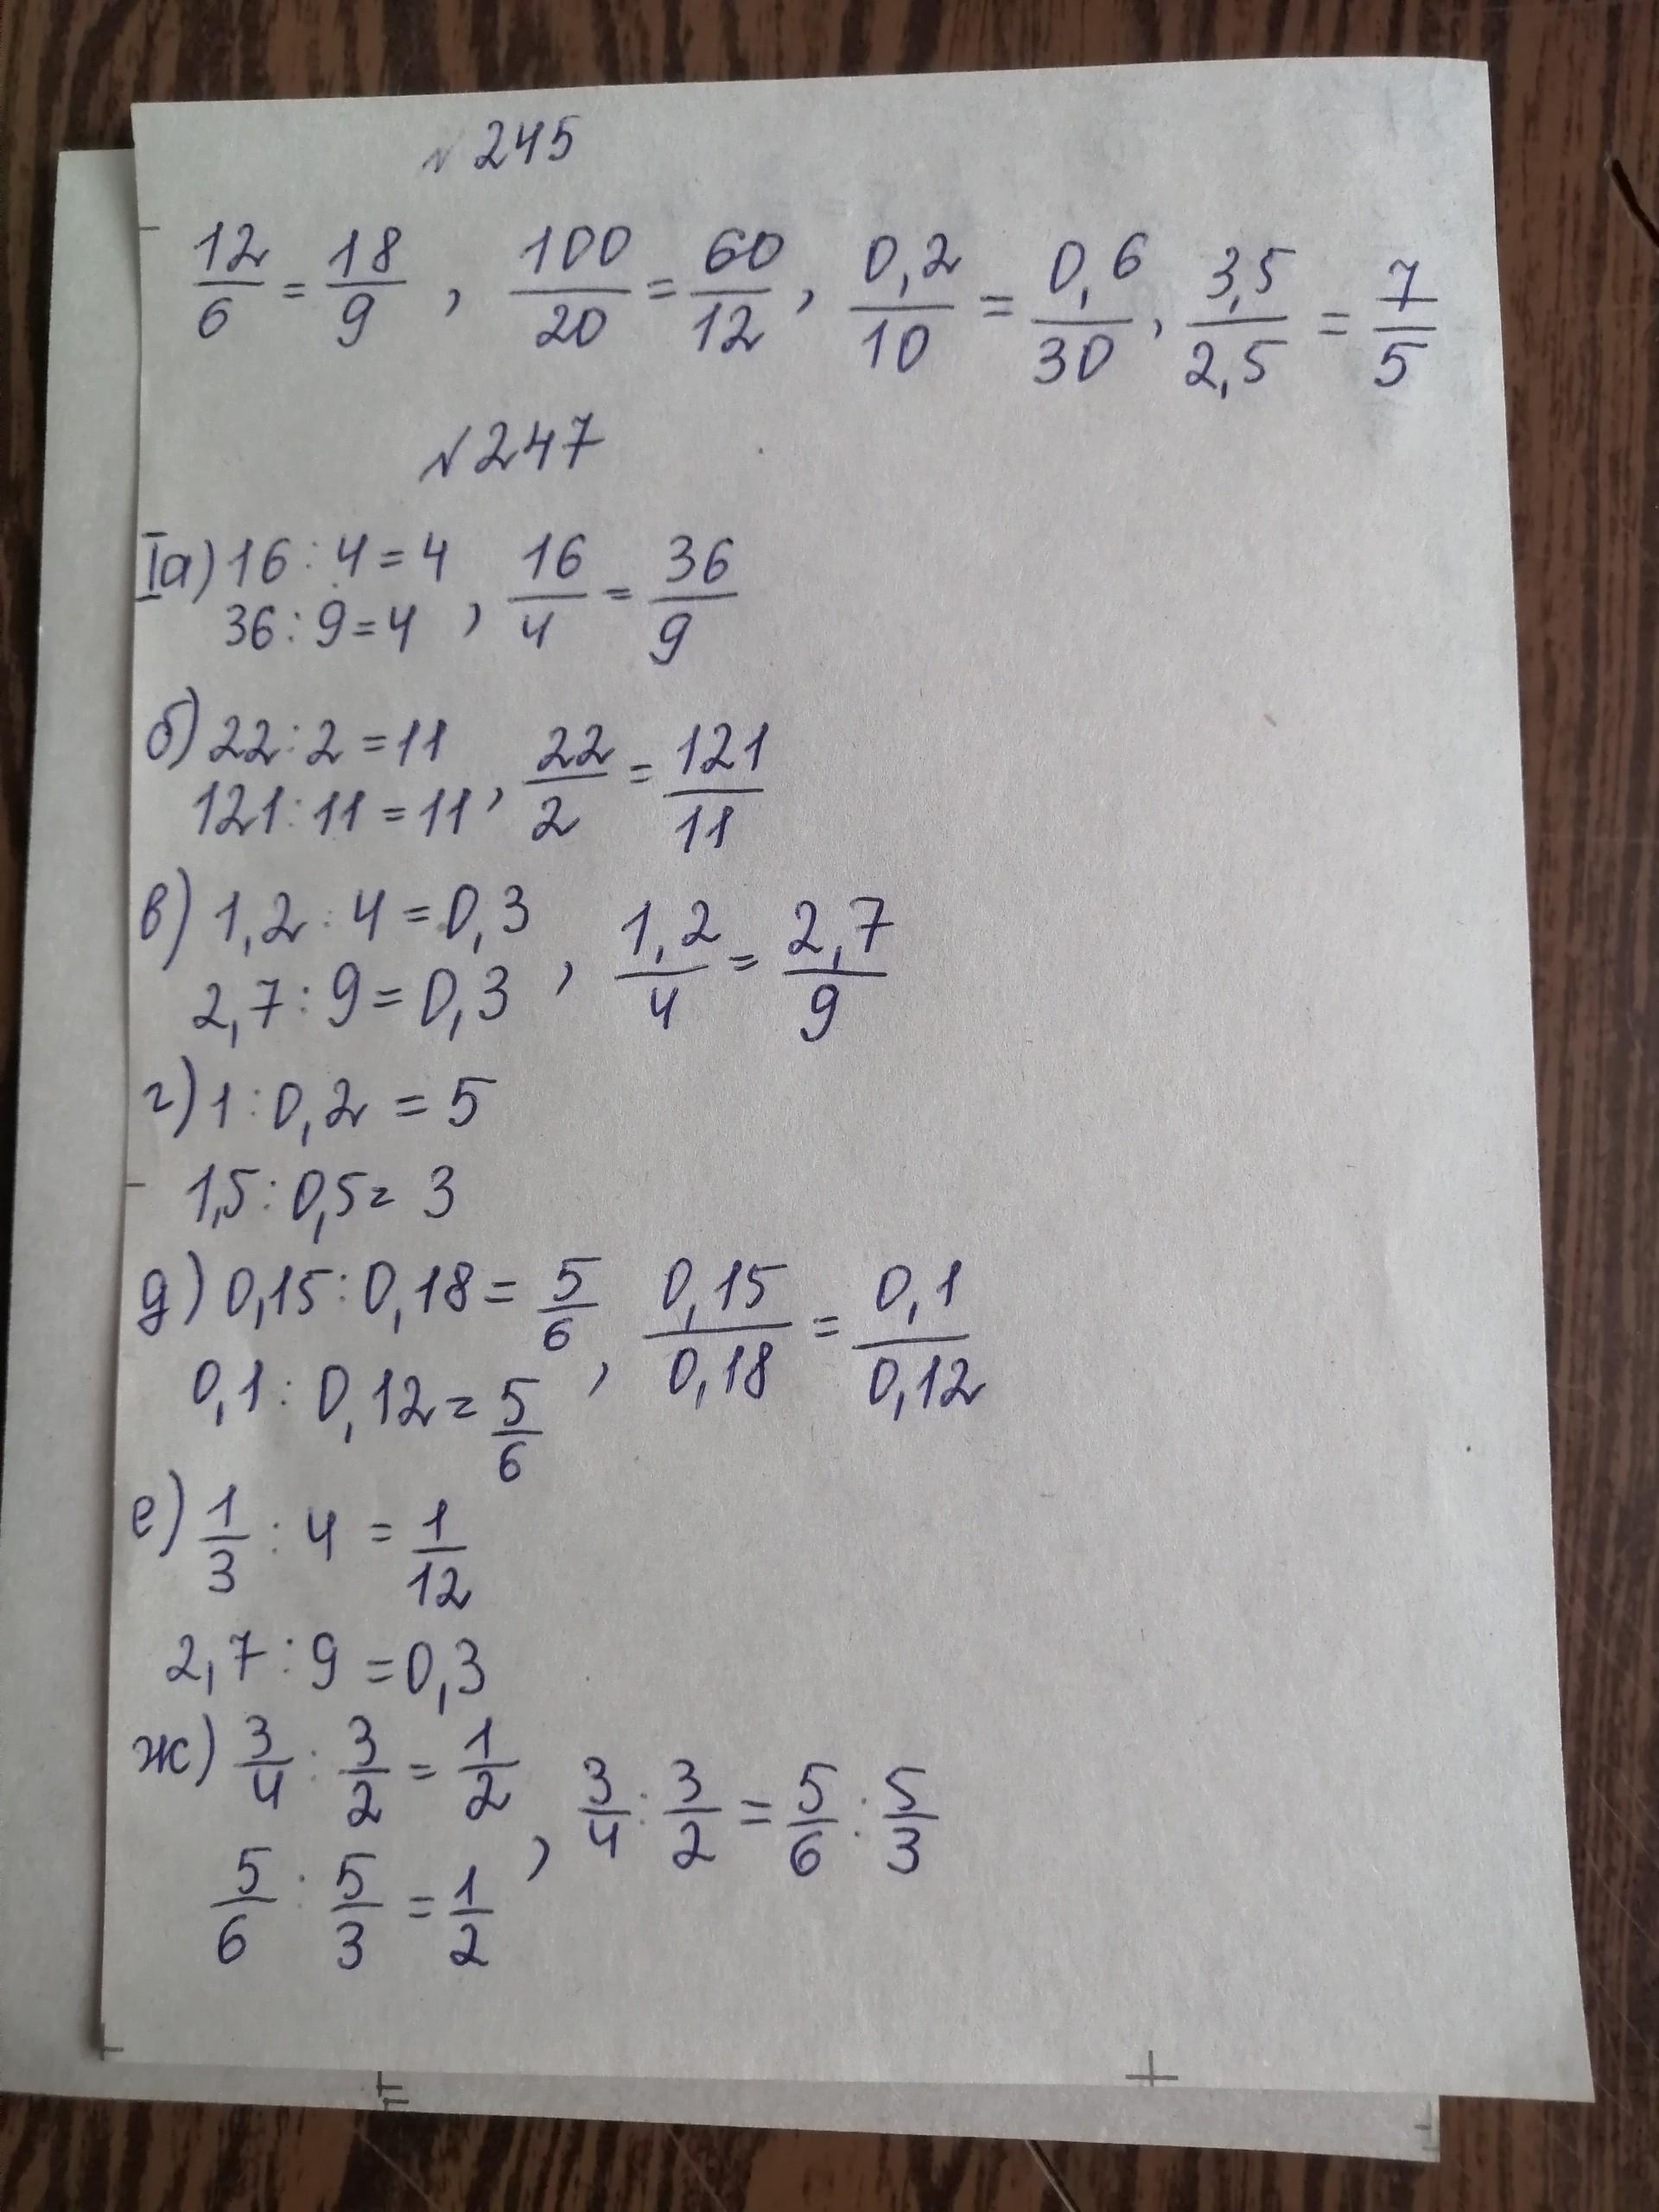 № 245
12/6 = 18/9 , 100/20 = 60/12 , 0,2/10 = 0,6/30 , 3,5/2,5 = 7/5
№ 247
Iа) 16 : 4 = 4
36 : 9 = 4 , 16/4 = 36/9
б) 22 : 2 = 11
121 : 11 = 11 , 22/2 = 121/11
в) 1,2 : 4 = 0,3
2,7 : 9 = 0,3 , 1,2/4 = 2,7/9
г) 1 : 0,2 = 5
1,5 : 0,5 = 3
д) 0,15 : 0,18 = 5/6
0,1 : 0,12 = 5/6 , 0,15/0,18 = 0,1/0,12
е) 1/3 : 4 = 1/12
2,7 : 9 = 0,3
ж) 3/4 : 3/2 = 1/2
5/6 : 5/3 = 1/2 , 3/4 : 3/2 = 5/6 : 5/3